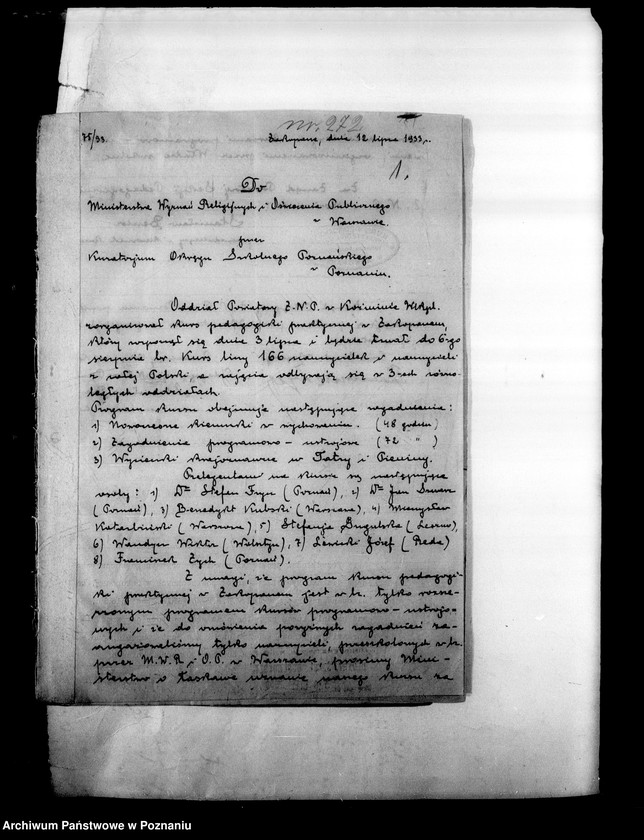 nr. 272
75/33. Zakopane, dnia 12 lipca 1933 r.
1.
Do
Ministerstwa Wyznań Religijnych i Oświecenia Publicznego
w Warszawie.
przez
Kuratorjum Okręgu Szkolnego Poznańskiego
w Poznaniu.
Oddział Powiatowy Z.N.P. w Koźminie Wlkpl.
zorganizował kurs pedagogiki praktycznej w Zakopanem,
który rozpoczął się dnia 3 lipca i będzie trwał do 6-go
sierpnia br. Kurs liczy 166 nauczycielek i nauczycieli
z całej Polski, a zajęcia odbywają się w 3-ech równo-
ległych oddziałach.
Program kursu obejmuje następujące zagadnienia:
1) Nowoczesne kierunki w wychowaniu. (48 godzin)
2) Zagadnienia programowo-ustrojowe (72 " )
3) Wycieczki krajoznawcze w Tatry i Pieniny.
Prelegentami na kursie są następujące
osoby: 1) Dr Stefan (Poznań), 2) Dr Jan
(Poznań), 3) Benedykt Kubski (Warszawa), 4) Mieczysław
Kotarbiński (Warszawa), 5) Stefanja (Leszno),
6) Wiktor (Wolsztyn), 7) Józef (Reda)
8) Franciszek Zych (Poznań).
Z uwagi, że program kursu pedagogi-
ki praktycznej w Zakopanem jest w br. tylko rozsze-
rzonym programem kursów programowo-ustrojo-
wych i że do omówienia powyższych zagadnień za-
angażowaliśmy tylko nauczycieli, przeszkolonych w br.
przez M.W.R. i O.P. w Warszawie, prosimy Mini-
sterstwo o łaskawe uznanie naszego kursu za
Archiwum Państwowe w Poznaniu